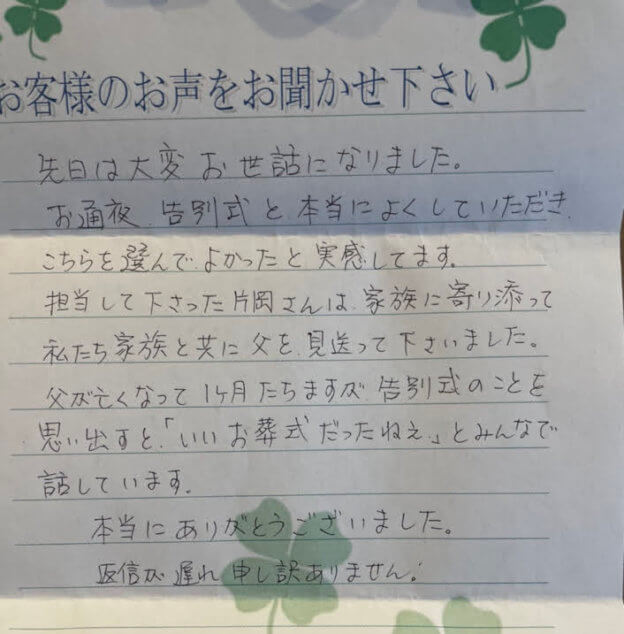 お客様のお声をお聞かせ下さい
先日は大変お世話になりました。
お通夜、告別式と本当によくしていただき
こちらを選んでよかったと実感してます。
担当して下さった片岡さんは、家族に寄り添って
私たち家族と共に父を見送って下さいました。
父が亡くなって1ヶ月たちますが、告別式のことを
思い出すと、「いいお葬式だったねぇ。」とみんなで
話しています。
本当にありがとうございました。
返信が遅れ申し訳ありません。